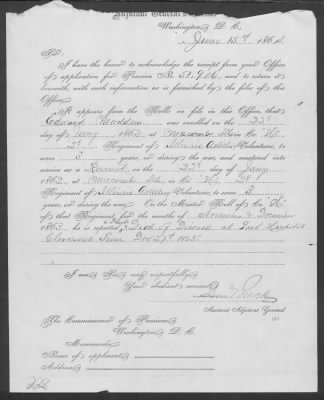 Adjutant General's Office,
Washington, D. C.
June 15th, 1864.
Sir:
I have the honor to acknowledge the receipt from your Office
of application for Pension No. 51.926, and to return it
herewith, with such information as is furnished by the files of this
Office.
It appears from the Rolls on file in this Office, that
Edward Maddux was enrolled on the 22d
day of 1862, at Macomb Ills in Co. "H"
2d Regiment of Illinois Artillery Volunteers, to
serve 3 years, or during the war, and mustered into
service as a Recruit on the 22d day of
1862, at Macomb Ills, in Co. "H" 2d
Regiment of Illinois Artillery Volunteers, to serve 3
years, or during the war. On the Muster Roll of Co. "H"
of that Regiment, for the months of November & December
1863, he is reported Died of Disease at Post Hospital
Clarksville Tenn. Decr 1863.
I am, Sir, very respectfully,
Your obedient servant,
Assistant Adjutant General.
The Commissioner of Pensions,
Washington, D. C.
Memoranda:
Name of applicant
Address